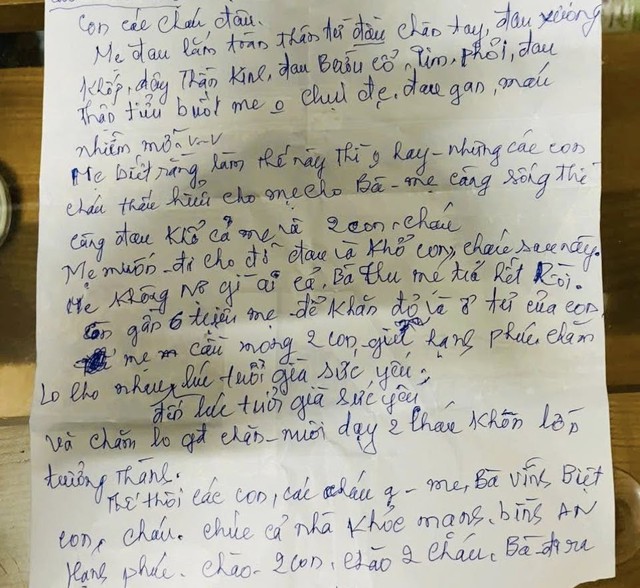 Con các cháu đâu.
Mẹ đau lắm toàn thân từ đầu chân tay, đau xương
Khớp, dây Thần Kinh, đau Bướu cổ, Tim, phổi, đau
thận tiểu buốt mẹ o chịu đc, đau gan, máu
nhiễm mỡ v-v
Mẹ biết rằng làm thế này thì o hay - nhưng các con
cháu thấu hiểu cho mẹ cho Bà - mẹ càng sống thì
càng đau Khổ cả mẹ và 2 con, cháu
Mẹ muốn - đi cho đỡ đau và Khổ con, cháu sau này.
Mẹ Không nợ gì ai cả, Bà Thu mẹ trả hết Rồi.
Còn gần 6 triệu mẹ để Khăn đỏ là ở tủ của con
mẹ cầu mong 2 con giữ hạnh phúc chăm
lo cho nhau lúc tuổi già sức yếu.
đến lúc tuổi già sức yếu
và chăm lo gđ chăn - nuôi dạy 2 cháu Khôn lớn
trưởng Thành.
Thế thôi các con, các cháu - mẹ, Bà vĩnh Biệt
con, cháu. chúc cả nhà Khỏe mạnh. bình AN
Hạnh phúc. chào - 2 con, chào 2 cháu. Bà đi ra